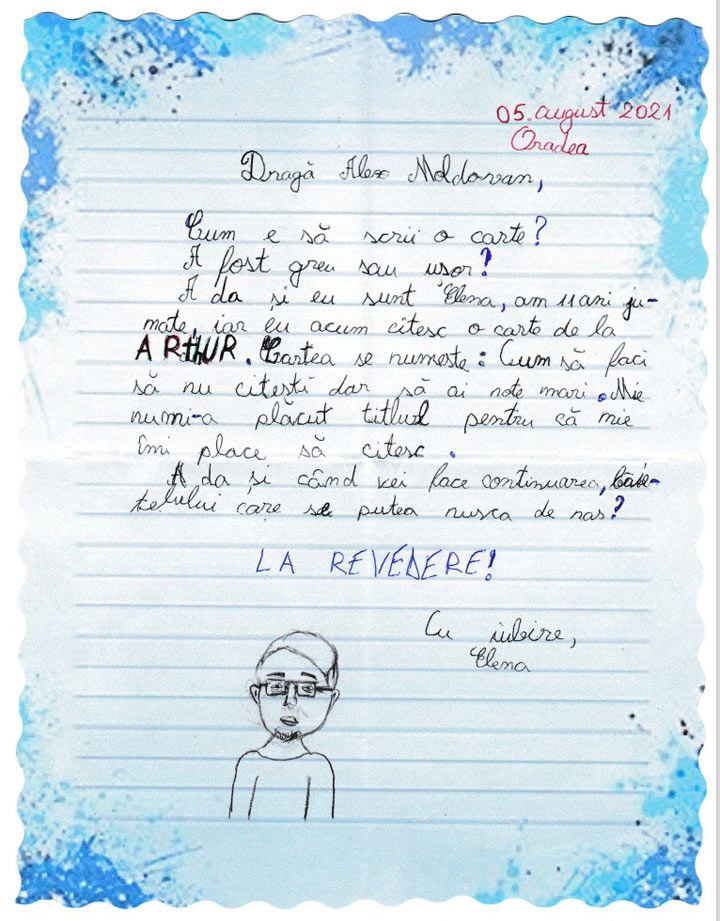 05. august 2021
Oradea
Dragă Alex Moldovan,
Cum e să scrii o carte?
A fost greu sau ușor?
A da și eu sunt Elena, am 11 ani ju-
mate, iar eu acum citesc o carte de la
ARTHUR. Cartea se numește: Cum să faci
să nu citești dar să ai note mari. Mie
numi-a plăcut titlul pentru că mie
îmi place să citesc.
A da și când vei face continuarea,
care se putea mușca de nas?
LA REVEDERE!
Cu iubire,
Elena